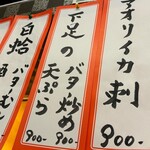 アオリイカ刺
900-
下足の
バタ炒め
天ぷら
900-
白蛤
バターむし
酒
900-